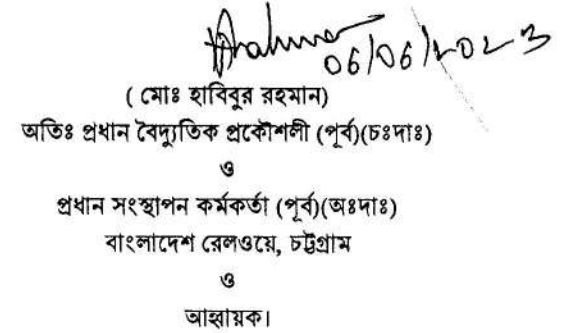 Rahman
06/06/2023
( মোঃ হাবিবুর রহমান)
অতিঃ প্রধান বৈদ্যুতিক প্রকৌশলী (পূর্ব)(চঃদাঃ)
ও
প্রধান সংস্থাপন কর্মকর্তা (পূর্ব)(অঃদাঃ)
বাংলাদেশ রেলওয়ে, চট্টগ্রাম
ও
আহ্বায়ক।